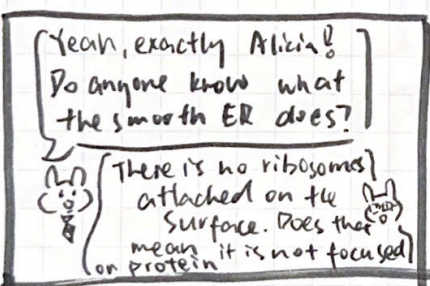 Yeah, exactly Alicia!
Do anyone know what
the smooth ER does?
There is no ribosomes
attached on the
surface. Does that
mean it is not focused
on protein